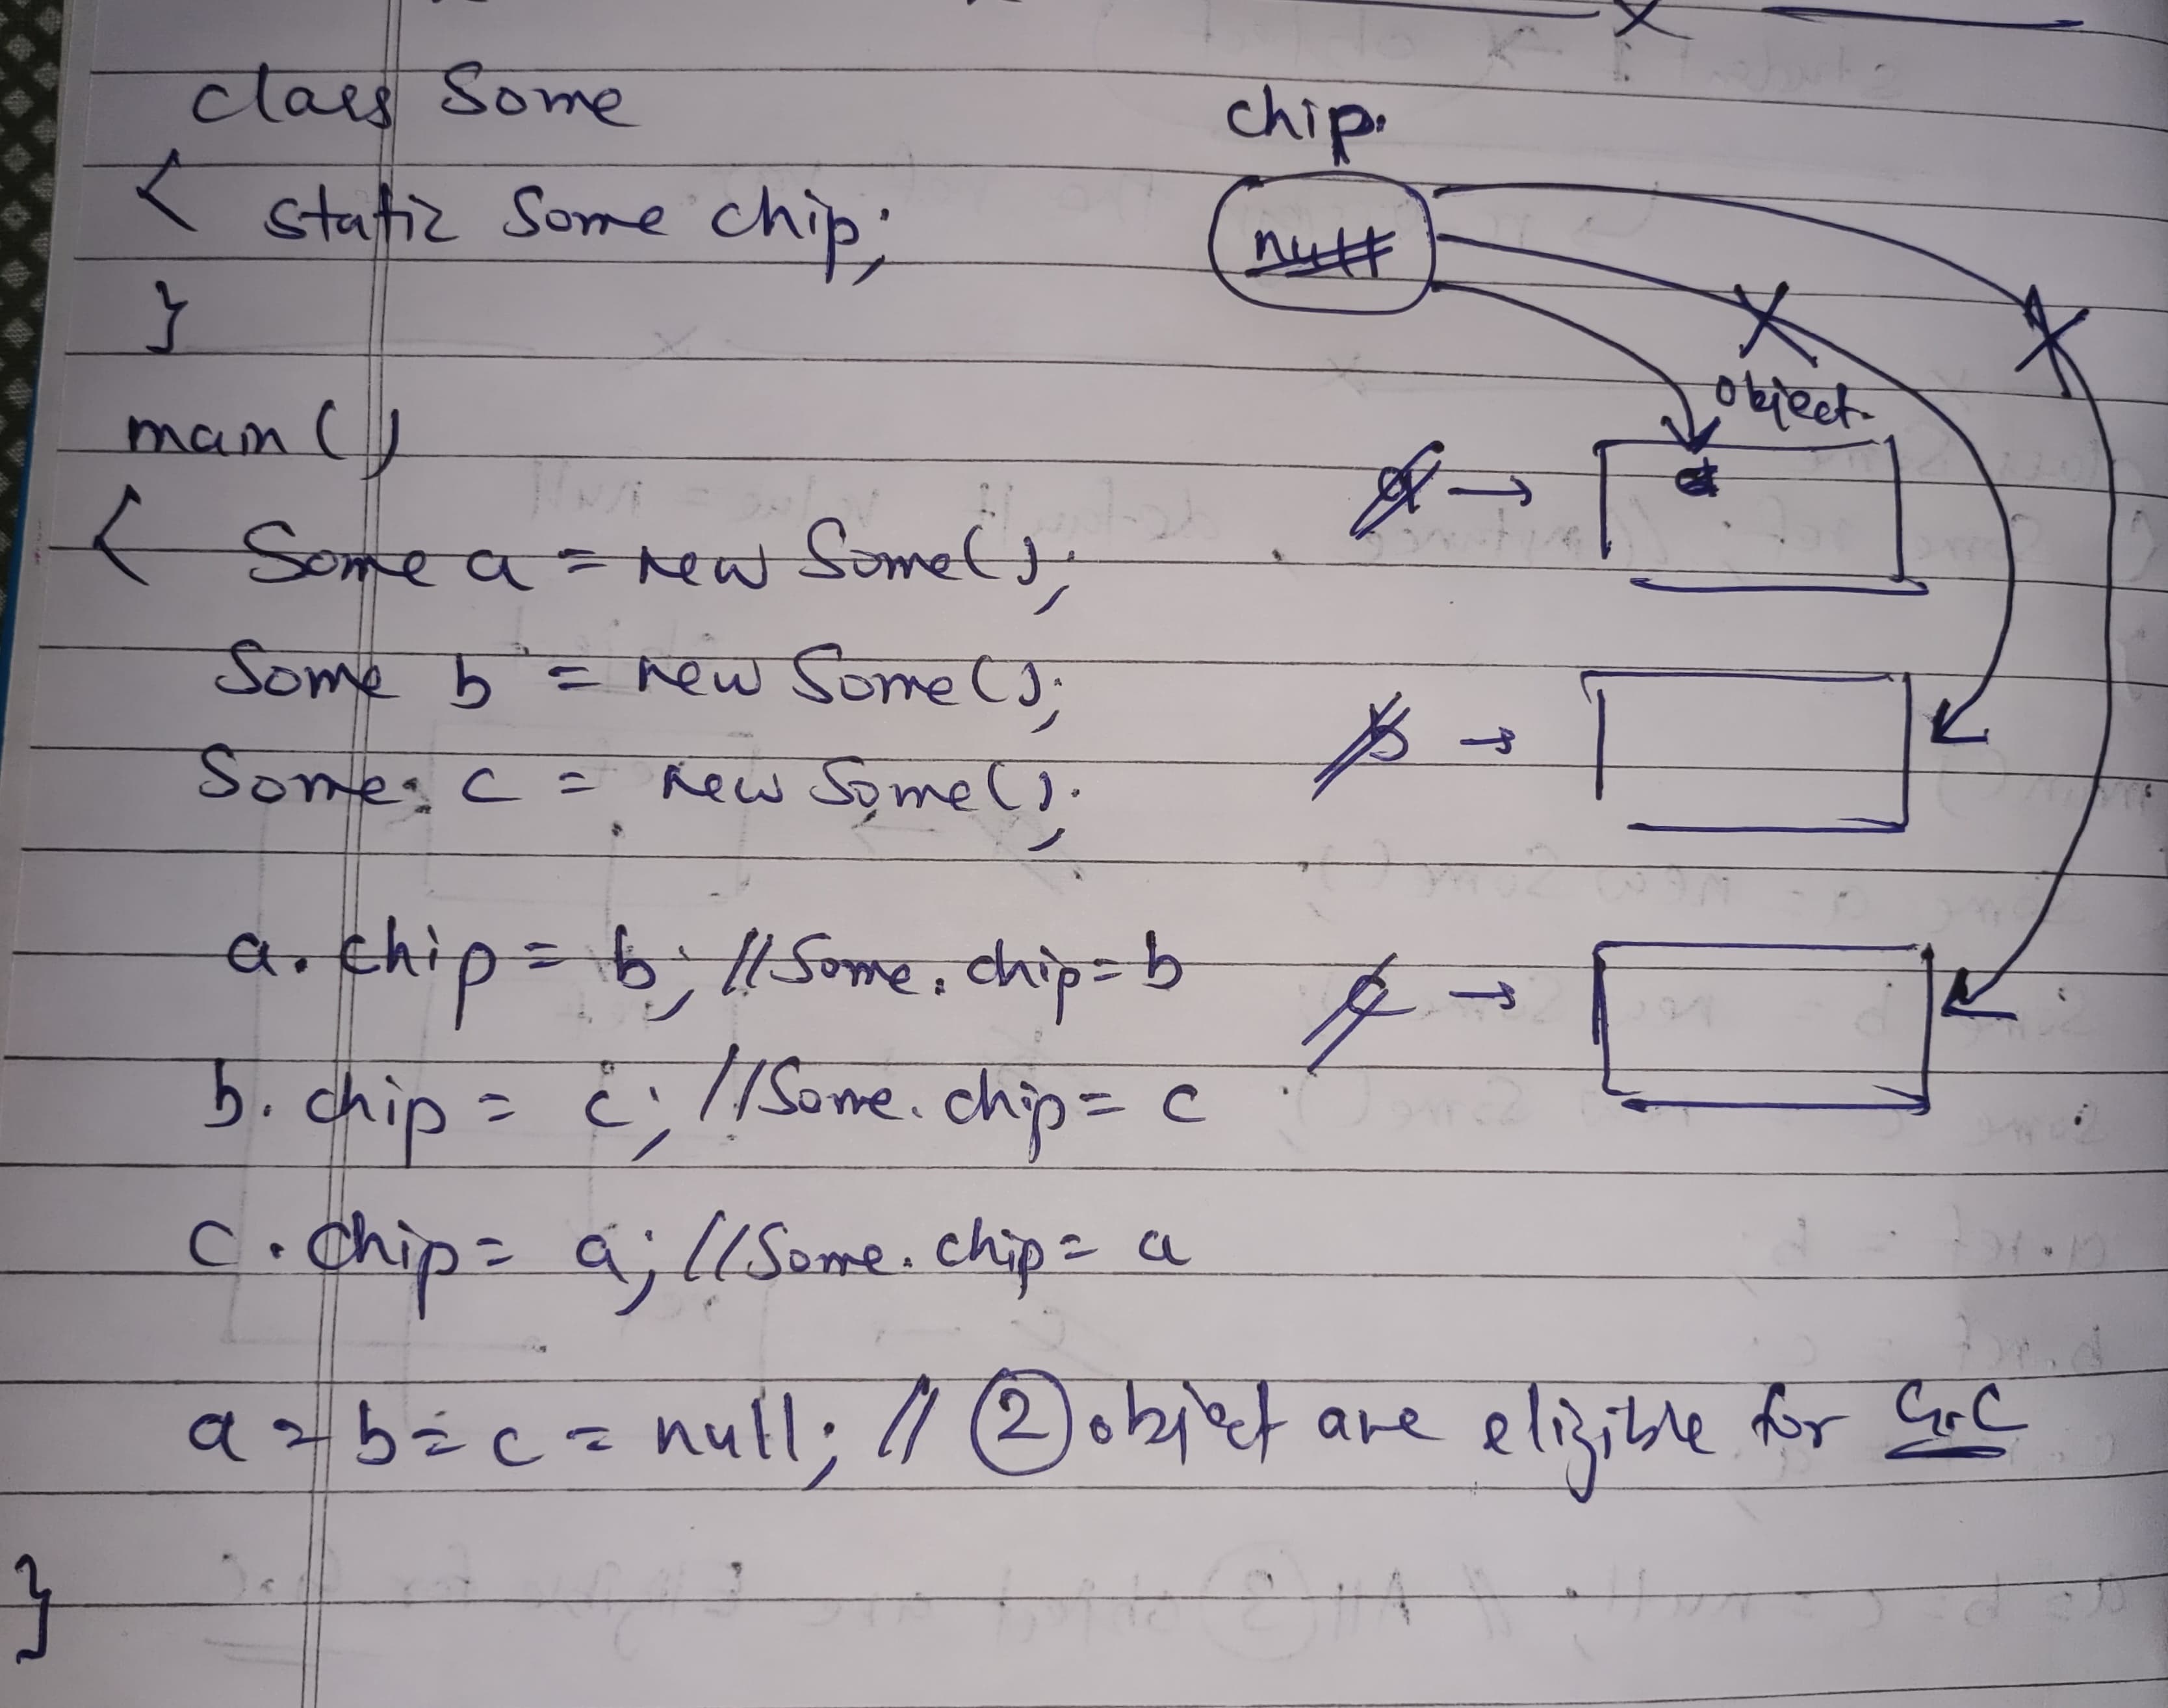 class Some
{ static Some chip;
}
main()
{ Some a = new Some();
Some b = new Some();
Some c = new Some();
a. chip = b; //Some. chip = b
b. chip = c; //Some. chip = c
c. chip = a; //Some. chip = a
a = b = c = null; // 2 object are elizible for G.C
}
chip.
null
object
a →
b →
c →